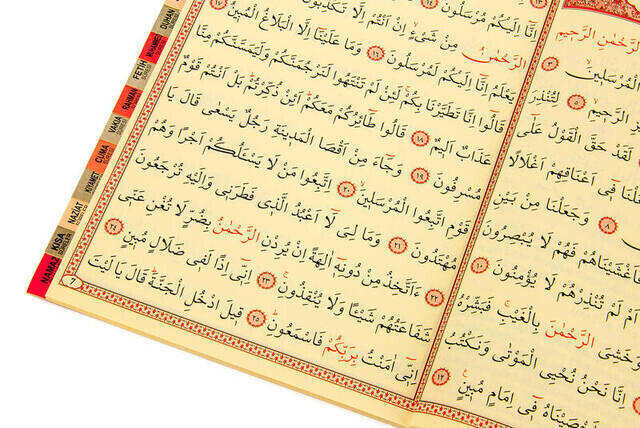 الرَّحْمٰنِ الرَّحِيمِ
الْمُرْسَلِينَۙ ﴿٣﴾
الرَّحِيمِۙ ﴿٥﴾ لِتُنْذِرَ
لَقَدْ حَقَّ الْقَوْلُ عَلٰٓى
فِٓى اَعْنَاقِهِمْ اَغْلَالًا
﴿٨﴾ وَجَعَلْنَا مِنْ بَيْنِ
فَهُمْ لَا يُبْصِرُونَ
اَمْ لَمْ تُنْذِرْهُمْ لَا يُؤْمِنُونَ ﴿١٠﴾
وَخَشِىَ الرَّحْمٰنَ بِالْغَيْبِۚ فَبَشِّرْهُ
اِنَّا نَحْنُ نُحْيِى الْمَوْتٰى وَنَكْتُبُ
فِٓى اِمَامٍ مُبِينٍ۟ ﴿١٢﴾
اِنَّٓا اِلَيْكُمْ مُرْسَلُونَ
الرَّحْمٰنُ مِنْ شَىْءٍۙ اِنْ اَنْتُمْ اِلَّا تَكْذِبُونَ
يَعْلَمُ اِنَّٓا اِلَيْكُمْ لَمُرْسَلُونَ ﴿١٦﴾ وَمَا عَلَيْنَٓا اِلَّا الْبَلَاغُ الْمُبِينُ ﴿١٧﴾
قَالُٓوا اِنَّا تَطَيَّرْنَا بِكُمْۚ لَئِنْ لَمْ تَنْتَهُوا لَنَرْجُمَنَّكُمْ وَلَيَمَسَّنَّكُمْ مِنَّا
عَذَابٌ اَلِيمٌ ﴿١٨﴾ قَالُوا طَٓائِرُكُمْ مَعَكُمْۜ اَئِنْ ذُكِّرْتُمْۜ بَلْ اَنْتُمْ قَوْمٌ
مُسْرِفُونَ ﴿١٩﴾ وَجَٓاءَ مِنْ اَقْصَا الْمَدِينَةِ رَجُلٌ يَسْعٰى قَالَ يَا
قَوْمِ اتَّبِعُوا الْمُرْسَلِينَۙ ﴿٢٠﴾ اِتَّبِعُوا مَنْ لَا يَسْـَٔلُكُمْ اَجْرًا وَهُمْ
مُهْتَدُونَ ﴿٢١﴾ وَمَا لِىَ لَٓا اَعْبُدُ الَّذِى فَطَرَنِى وَاِلَيْهِ تُرْجَعُونَ
﴿٢٢﴾ ءَاَتَّخِذُ مِنْ دُونِهٖٓ اٰلِهَةً اِنْ يُرِدْنِ الرَّحْمٰنُ بِضُرٍّ لَا تُغْنِ عَنِّى
شَفَاعَتُهُمْ شَيْـًٔا وَلَا يُنْقِذُونِۚ ﴿٢٣﴾ اِنِّٓى اِذًا لَفِى ضَلَالٍ مُبِينٍ ﴿٢٤﴾
اِنِّٓى اٰمَنْتُ بِرَبِّكُمْ فَاسْمَعُونِۜ ﴿٢٥﴾ قِيلَ ادْخُلِ الْجَنَّةَۜ قَالَ يَا لَيْتَ
٦
DUHAN
SURESİ
MUHAMMED
FETİH
SURESİ
RAHMAN
VAKIA
CUMA
SURESİ
KIYAMET
NAZİAT
KISA
SURELER
NAMAZ